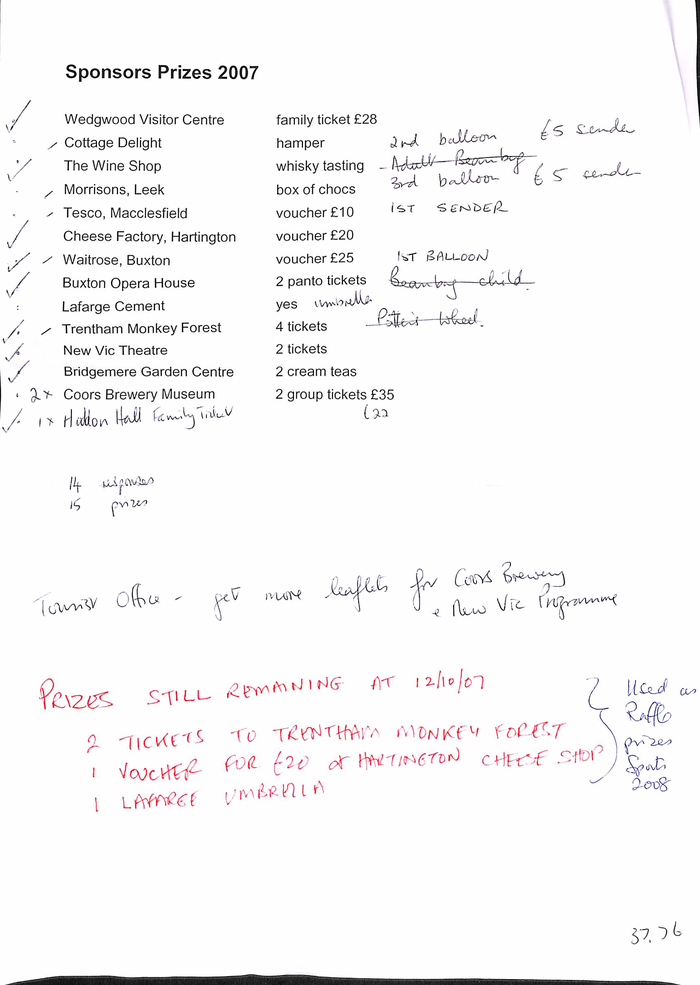 Sponsors Prizes 2007
Wedgwood Visitor Centre family ticket £28
Cottage Delight hamper 2nd balloon £5 sender
The Wine Shop whisky tasting - Adult Beambry
Morrisons, Leek box of chocs 3rd balloon £5 sender
Tesco, Macclesfield voucher £10 1ST SENDER
Cheese Factory, Hartington voucher £20
Waitrose, Buxton voucher £25 1ST BALLOON
Buxton Opera House 2 panto tickets child
Lafarge Cement yes umbrella
Trentham Monkey Forest 4 tickets Potter's Wheel.
New Vic Theatre 2 tickets
Bridgemere Garden Centre 2 cream teas
2x Coors Brewery Museum 2 group tickets £35
1x Haddon Hall Family Ticket £22
14 responses
15 prizes
Tourist Office - get more leaflets for Coors Brewery
& New Vic Programme
PRIZES STILL REMAINING AT 12/10/07
2 TICKETS TO TRENTHAM MONKEY FOREST
1 VOUCHER FOR £20 at HARTINGTON CHEESE SHOP
1 LAFARGE UMBRELLA
Used as
Raffle
prizes
Sports
2008
37.76